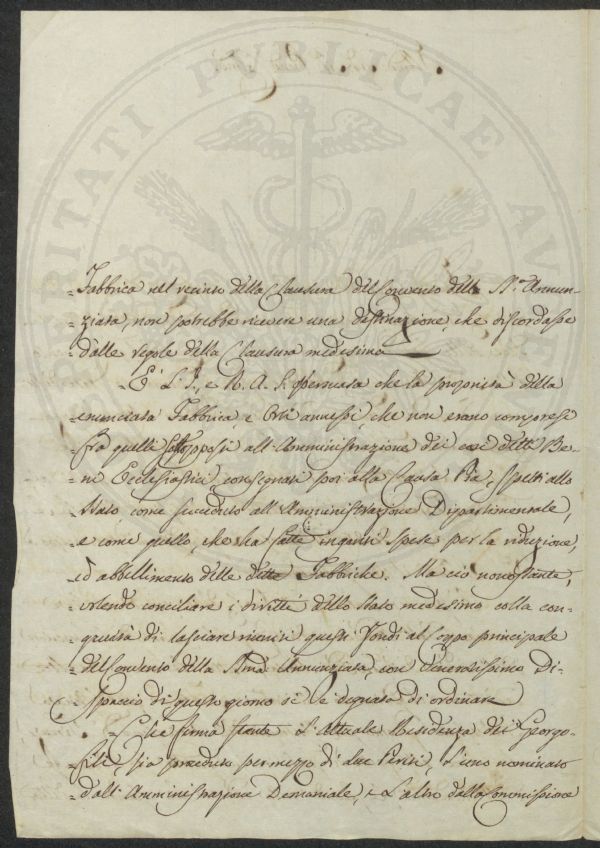 PROSPERITATI PUBLICAE AUGENDAE
-Fabbrica nel recinto della Clausura del Convento della SS.ª Annun-
-ziata, non potrebbe ricevere una destinazione, che discordasse
-dalle regole della Clausura medesima
-È L. I., e R. A. S. persuasa che la proprietà della
-enunciata Fabbrica, e Orti annessi, che non erano compresi
-fra quelli sottoposti all'Amministrazione dei così detti Be-
-ni Ecclesiastici consegnati poi alla Causa Pia, spetti allo
-Stato come succeduto all'Amministrazione Dipartimentale,
-e come quello, che ha fatte ingenti spese per la riduzione,
-ed abbellimento delle dette Fabbriche. Ma ciò nonostante,
-volendo conciliare i diritti dello Stato medesimo colla con-
-gruità di lasciare riuniti questi Fondi al corpo principale
-del Convento della SSma Annunziata, con Veneratissimo Di-
-spaccio di questo giorno si è degnata di ordinare
-Che ferma stante l'attuale Residenza dei Georgo-
-fili, sia proceduto per mezzo di due Periti, l'uno nominato
-dall'Amministrazione Demaniale, e l'altro dalla Commissione